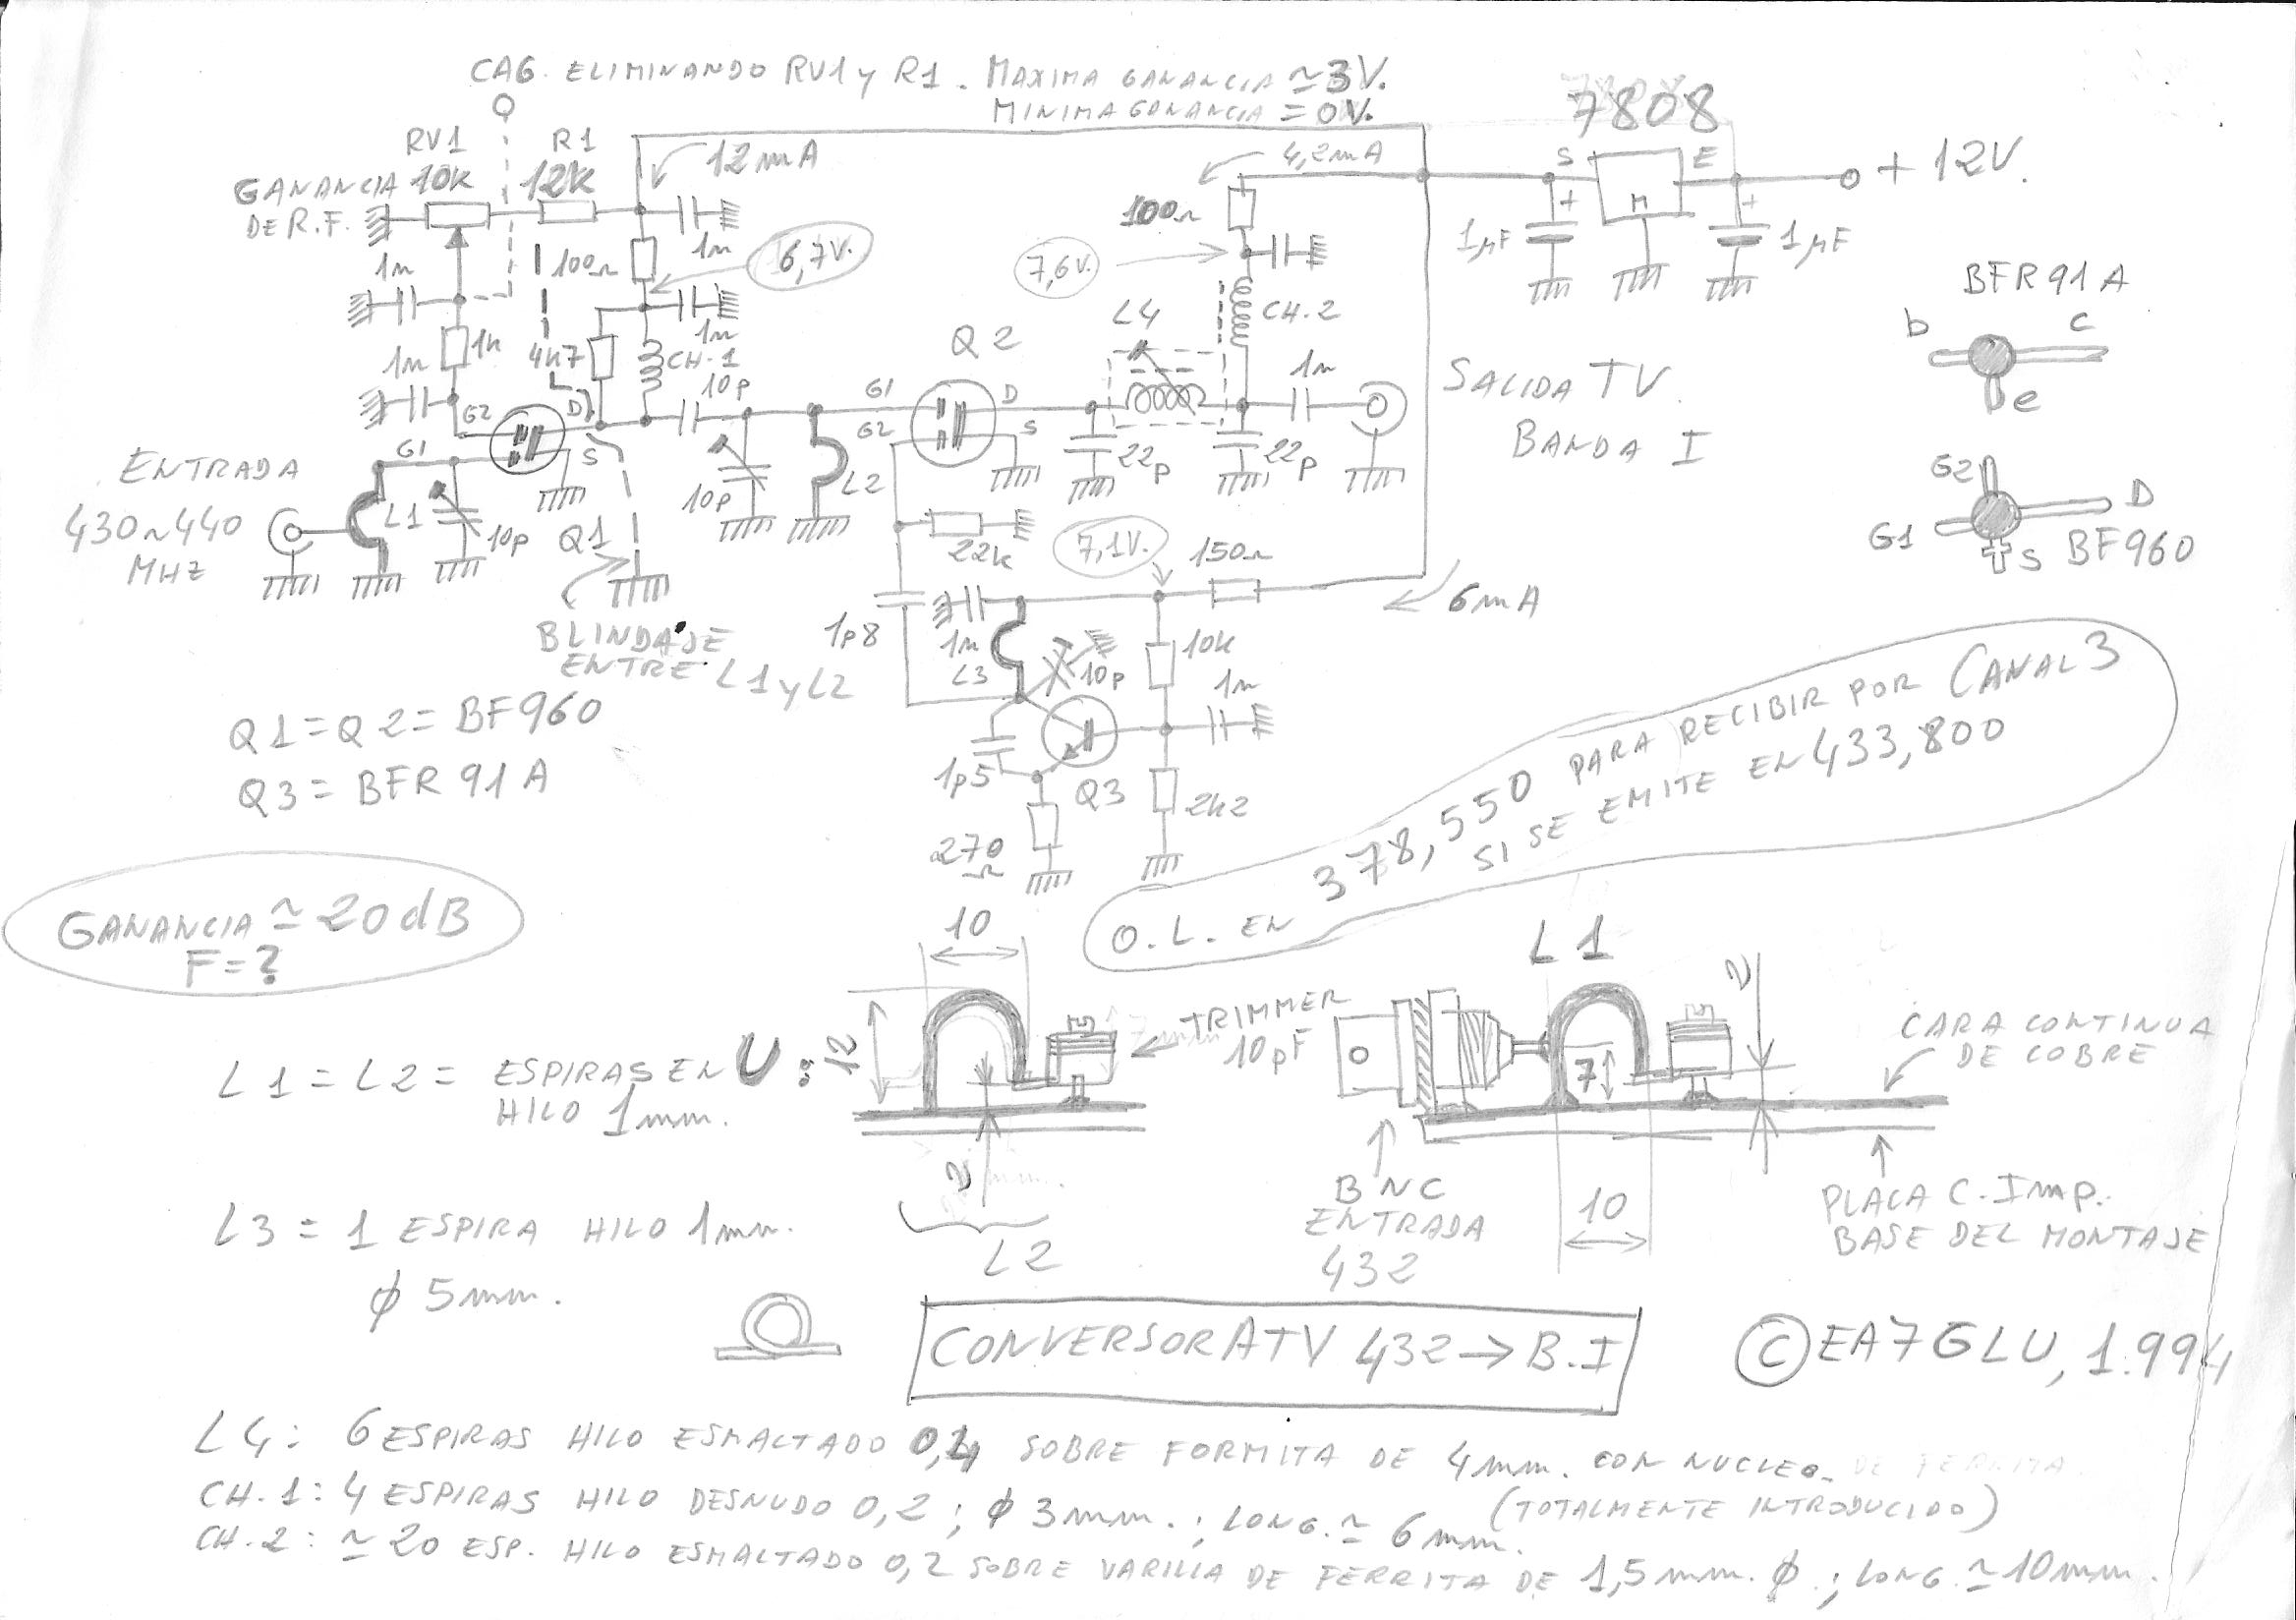 CAG. ELIMINANDO RV1 y R1. MAXIMA GANANCIA ≃ 3V.
MINIMA GANANCIA = 0V.
7808
RV1
10K
R1
12K
12mA
4,2mA
S
E
M
+ 12V.
GANANCIA
DE R.F.
100Ω
1n
6,7V.
100Ω
7,6V.
+
1µF
+
1µF
1n
1K
1n
4K7
CH-1
1n
10p
Q2
L4
CH.2
1n
BFR91A
b
c
e
SALIDA TV.
BANDA I
G2
D
G1
S
G1
G2
D
S
22p
22p
ENTRADA
430~440
MHZ
L1
10p
Q1
10p
L2
22K
7,1V.
150Ω
6mA
G2
D
G1
S
BF960
BLINDAJE
ENTRE L1 y L2
1p8
1n
L3
10p
10K
1n
1p5
Q3
2K2
270
Ω
Q1=Q2=BF960
Q3=BFR91A
O.L. EN 378,550 PARA RECIBIR POR CANAL 3
SI SE EMITE EN 433,800
GANANCIA ≃ 20dB
F=?
10
12
2
TRIMMER
10pF
L1
7
2
10
CARA CONTINUA
DE COBRE
L1=L2= ESPIRAS EN U:
HILO 1mm.
L2
BNC
ENTRADA
432
PLACA C. IMP.
BASE DEL MONTAJE
L3 = 1 ESPIRA HILO 1mm.
ϕ 5mm.
CONVERSOR ATV 432 → B.I
© EA7GLU, 1.994
L4: 6 ESPIRAS HILO ESMALTADO 0,4 SOBRE FORMITA DE 4mm. CON NUCLEO. DE FERRITA.
(TOTALMENTE INTRODUCIDO)
CH.1: 4 ESPIRAS HILO DESNUDO 0,2; ϕ 3mm.; LONG. ≃ 6mm.
CH.2: ≃ 20 ESP. HILO ESMALTADO 0,2 SOBRE VARILLA DE FERRITA DE 1,5mm. ϕ.; LONG. ≃ 10mm.